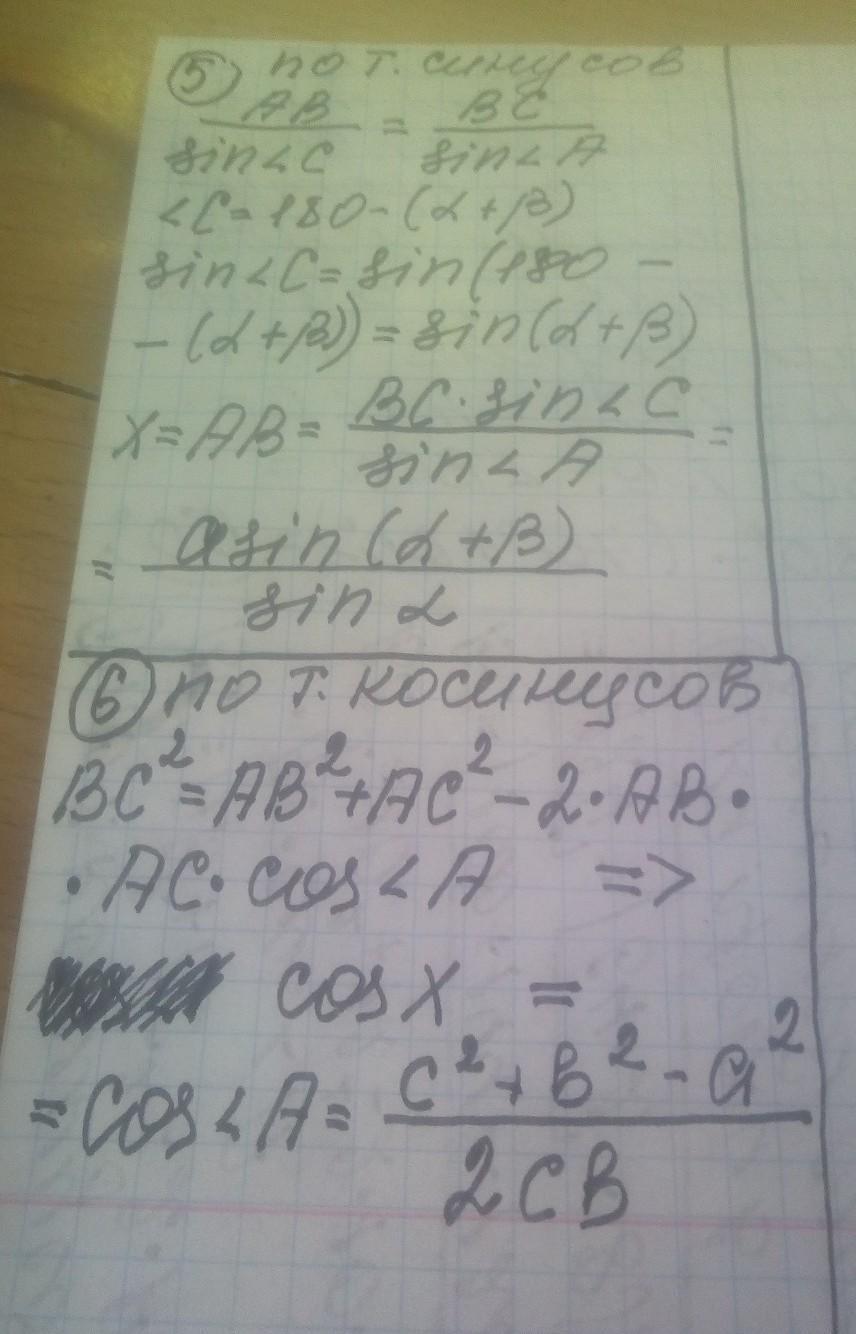 ⑤ по т. синусов
AB/sin<C = BC/sin<A
<C=180-(α+β)
sin<C=sin(180 -
-(α+β))=sin(α+β)
x=AB= BC·sin<C/sin<A =
= a sin(α+β)/sin α
⑥ по т. косинусов
BC²=AB²+AC²-2·AB·
·AC·cos<A =>
cos x =
=cos<A= c²+в²-a²/2cв